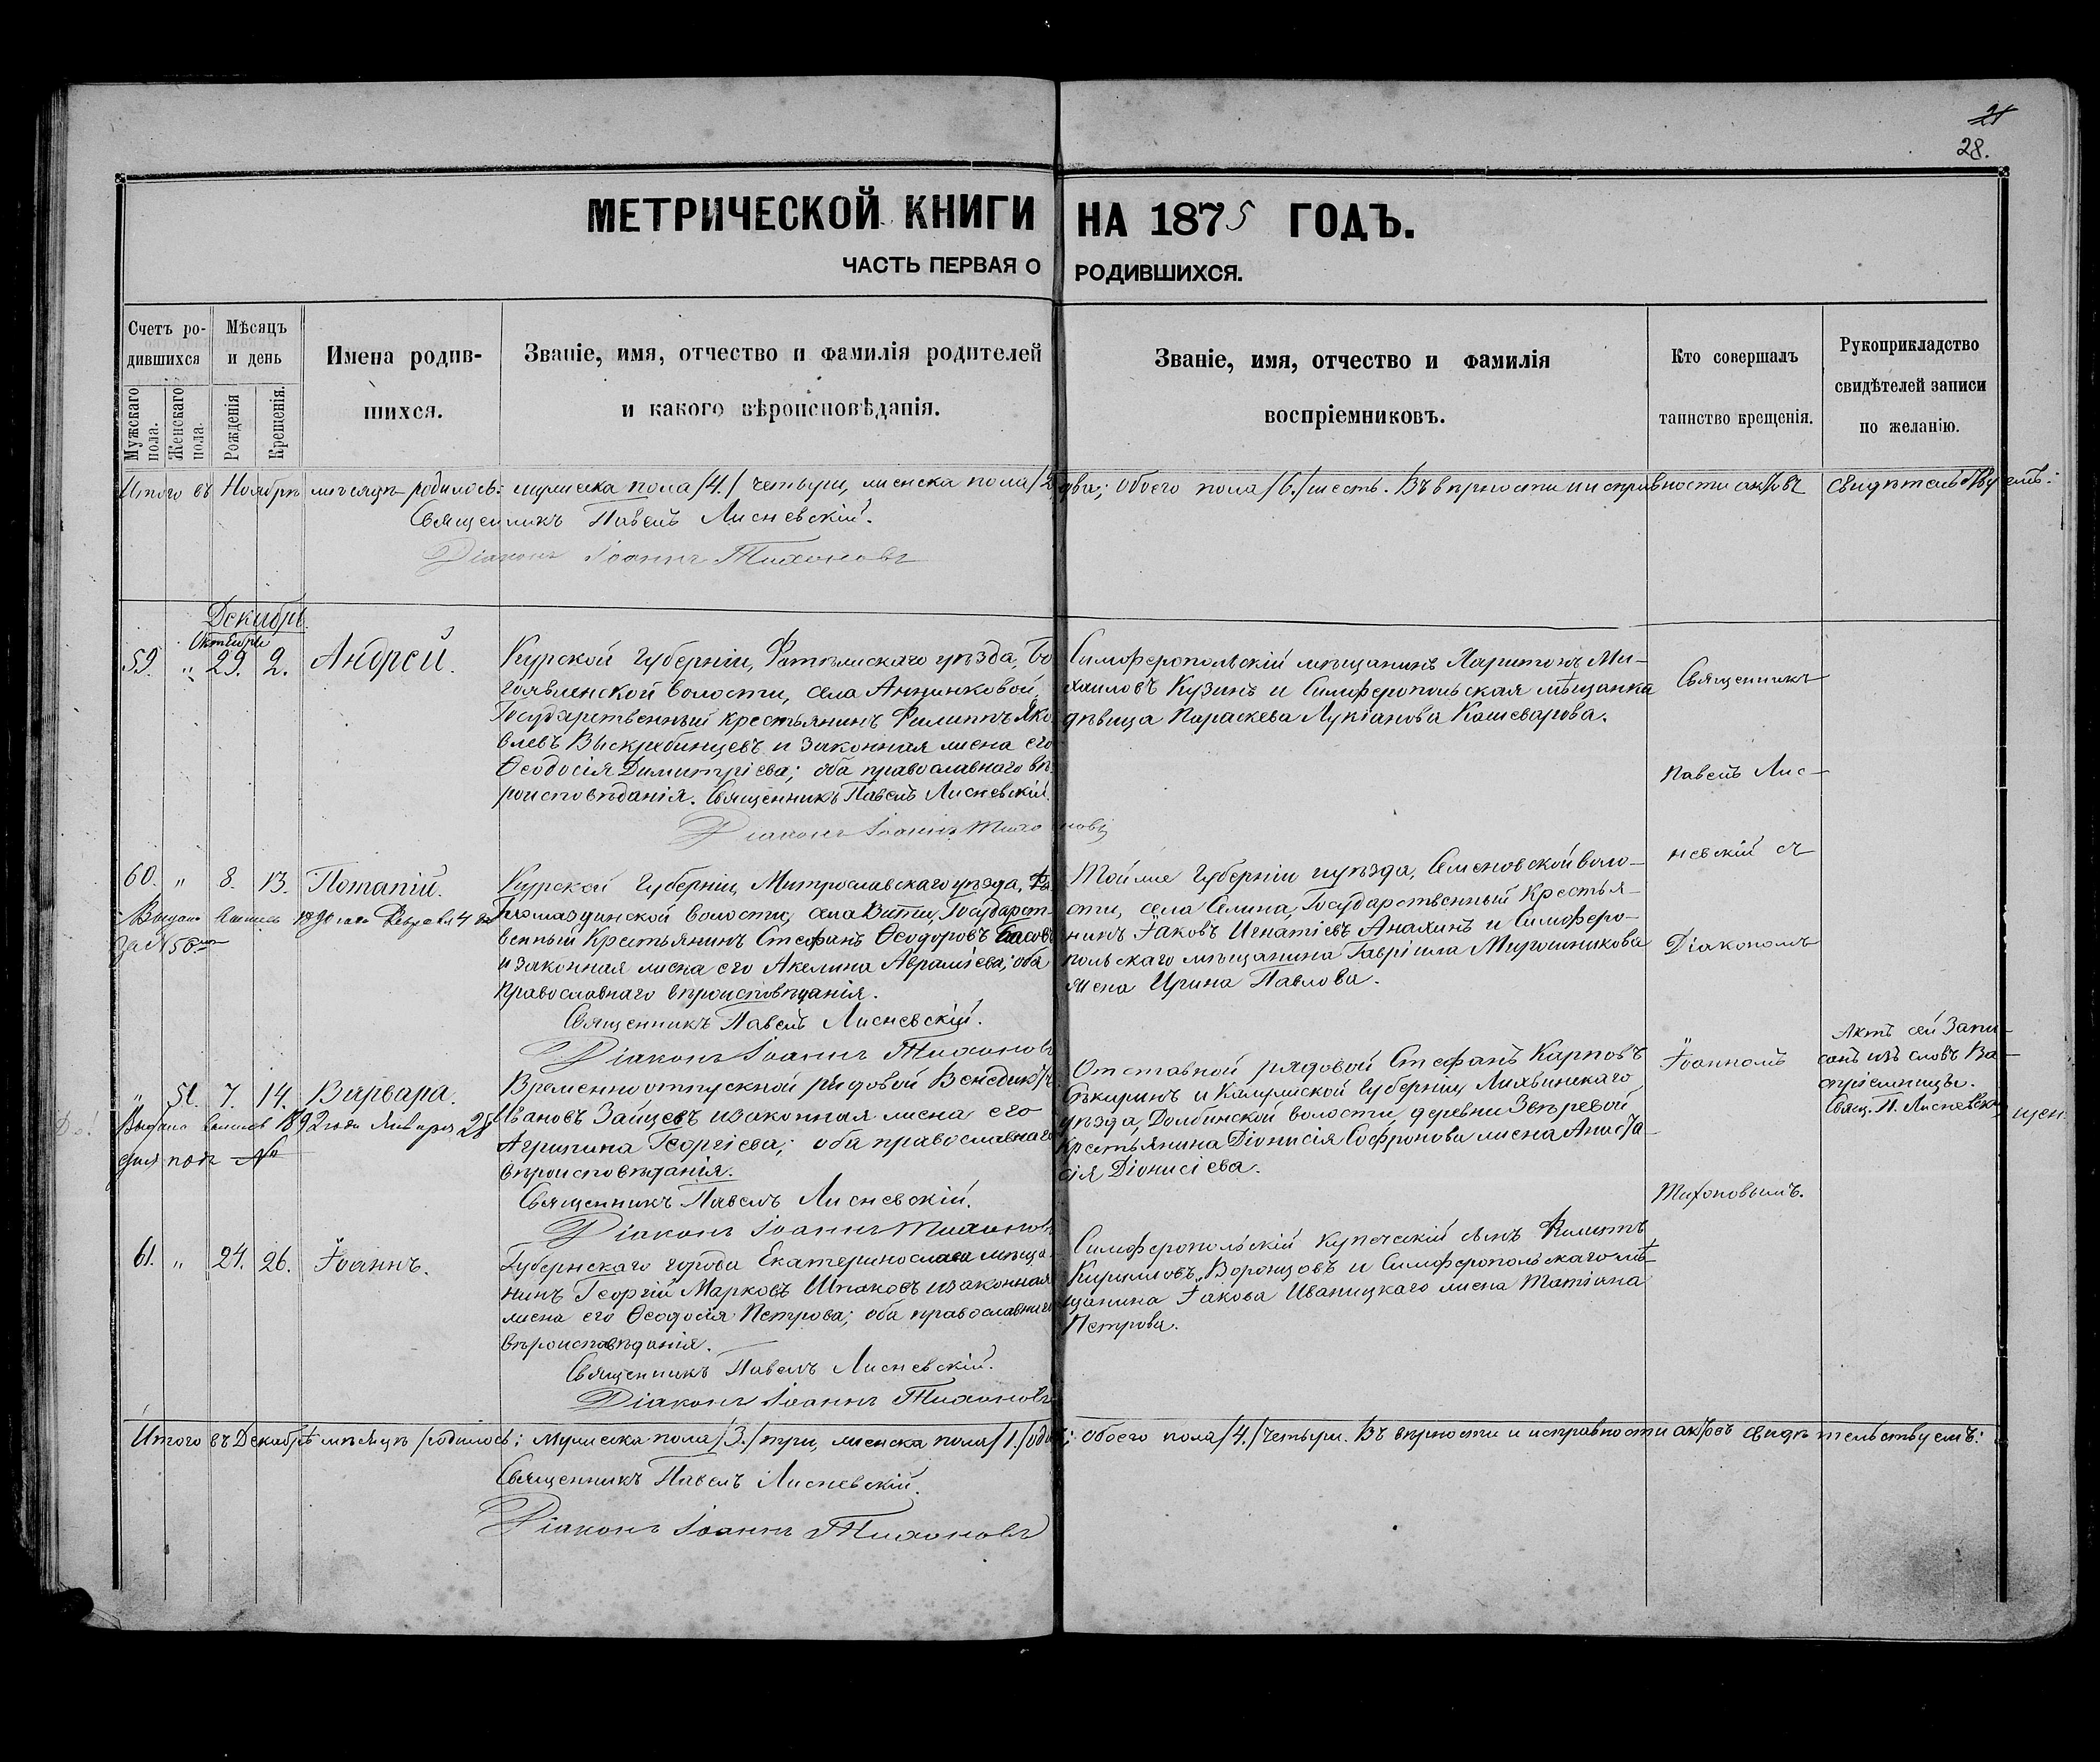 21
28.
МЕТРИЧЕСКОЙ КНИГИ НА 1875 ГОДЪ.
ЧАСТЬ ПЕРВАЯ О РОДИВШИХСЯ.
Счетъ ро-
дившихся
Мужскаго пола.
Женскаго пола.
Мѣсяцъ
и день
Рожденія
Крещенія.
Имена родив-
шихся.
Званіе, имя, отчество и фамилія родителей
и какого вѣроисповѣданія.
Званіе, имя, отчество и фамилія
воспріемниковъ.
Кто совершалъ
таинство крещенія.
Рукоприкладство
свидѣтелей записи
по желанію.
Итого въ Ноябрѣ мѣсяцѣ родилось: мужеска пола /4./ четыри, женска пола /2./ два; обоего пола /6./ шесть. Въ вѣрности и исправности актовъ свидѣтельствуемъ:
Священникъ Павелъ Лисневскій.
Діаконъ Іоаннъ Тихоновъ
Декабрь.
Октября
59. " 29. 2. Андрей.
Курской Губерніи, Фатѣжскаго уѣзда, Бо-
гоявленской волости, села
Государственный крестьянинъ Филиппъ Яко-
влевъ Выскребенцевъ и законная жена его
Ѳеодосія Димитріева; оба православнаго вѣ-
роисповѣданія. Священникъ Павелъ Лисневскій.
Діаконъ Іоаннъ Тихоновъ
Симферопольскій мѣщанинъ Харитонъ Ми-
хаиловъ Кузинъ и Симферопольская мѣщанка
дѣвица Параскева Лукіанова Кашеварова.
60. " 8. 13. Потапій.
Выдана выпись 1890 года Февраля 4 дня
за № 50
Курской Губерніи, Митрославскаго уѣзда,
волости, села Государст-
венный Крестьянинъ Стефанъ Ѳеодоровъ Басовъ
и законная жена его Акелина Аврамієва; оба
православнаго вѣроисповѣданія.
Священникъ Павелъ Лисневскій.
Діаконъ Іоаннъ Тихоновъ
Той же Губерніи и уѣзда, Семеновской воло-
сти, села Селина, Государственный Крестья-
нинъ Іаковъ Игнатіевъ Анахинъ и Симферо-
польскаго мѣщанина Гавріила Мирошникова
жена Ирина Павлова.
" 51. 7. 14. Варвара.
Выдана выпись 1892 года Января 28
дня подъ №
Временно отпускной рядовой Венедиктъ
Ивановъ Зайцевъ и законная жена его
Агрипина Георгіева; оба православнаго
вѣроисповѣданія.
Священникъ Павелъ Лисневскій.
Діаконъ Іоаннъ Тихоновъ
Отставной рядовой Стефанъ Карповъ
Сѣкиринъ и Калужской Губерніи, Лихвинскаго
уѣзда, Долбинской волости, деревни Звѣревой
крестьянина Діонисія Софронова жена Анаста-
сія Діонисіева.
Актъ сей запи-
санъ изъ словъ Во-
спріемницы.
Свящ. П. Лисневскій
61. " 24. 26. Іоаннъ.
Губернскаго города Екатеринослава мѣща-
нинъ Георгій Марковъ Ипаковъ и законная
жена его Ѳеодосія Петрова; оба православнаго
вѣроисповѣданія.
Священникъ Павелъ Лисневскій.
Діаконъ Іоаннъ Тихоновъ
Симферопольскій купеческій сынъ Филиппъ
Кирилловъ Воронцовъ и Симферопольскаго мѣ-
щанина Іакова Иваницкаго жена Татіана
Петрова.
Священникъ
Павелъ Лис-
невскій съ
Діакономъ
Іоанномъ
Тихоновымъ.
Итого въ Декабрѣ мѣсяцѣ родилось: мужеска пола /3./ три, женска пола /1./ одна; обоего пола /4./ четыри. Въ вѣрности и исправности актовъ свидѣтельствуемъ:
Священникъ Павелъ Лисневскій.
Діаконъ Іоаннъ Тихоновъ